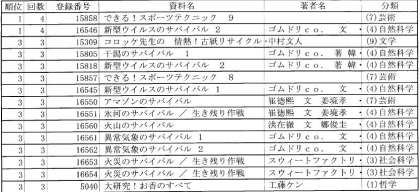 順位 回数 登録番号 資料名 著者名 分類
1 4 15858 できる！スポーツテクニック 9 (7)芸術
1 4 16546 新型ウイルスのサバイバル 2 ゴムドリco. 文 ・(4)自然科学
3 3 15309 コロッケ先生の 情熱！古紙リサイクル・中村文人 (9)文学
3 3 15805 干潟のサバイバル 1 ゴムドリco. 著 韓・(4)自然科学
3 3 15818 新型ウイルスのサバイバル 2 ゴムドリco. 著 韓・(4)自然科学
3 3 15857 できる！スポーツテクニック 8 (7)芸術
3 3 16545 新型ウイルスのサバイバル 1 ゴムドリco. 文 ・(4)自然科学
3 3 16550 アマゾンのサバイバル 崔徳熙 文 姜境孝 ・(7)芸術
3 3 16551 氷河のサバイバル / 生き残り作戦 崔徳熙 文 姜境孝 ・(4)自然科学
3 3 16560 火山のサバイバル 洪在徹 文 鄭俊圭 ・(4)自然科学
3 3 16561 異常気象のサバイバル 1 ゴムドリco. 文 ・(4)自然科学
3 3 16562 異常気象のサバイバル 2 ゴムドリco. 文 ・(4)自然科学
3 3 16653 火災のサバイバル / 生き残り作戦 スウィートファクトリ・(3)社会科学
3 3 16654 火災のサバイバル / 生き残り作戦 スウィートファクトリ・(3)社会科学
3 3 5040 大研究！お香のすべて 工藤ケン (1)哲学